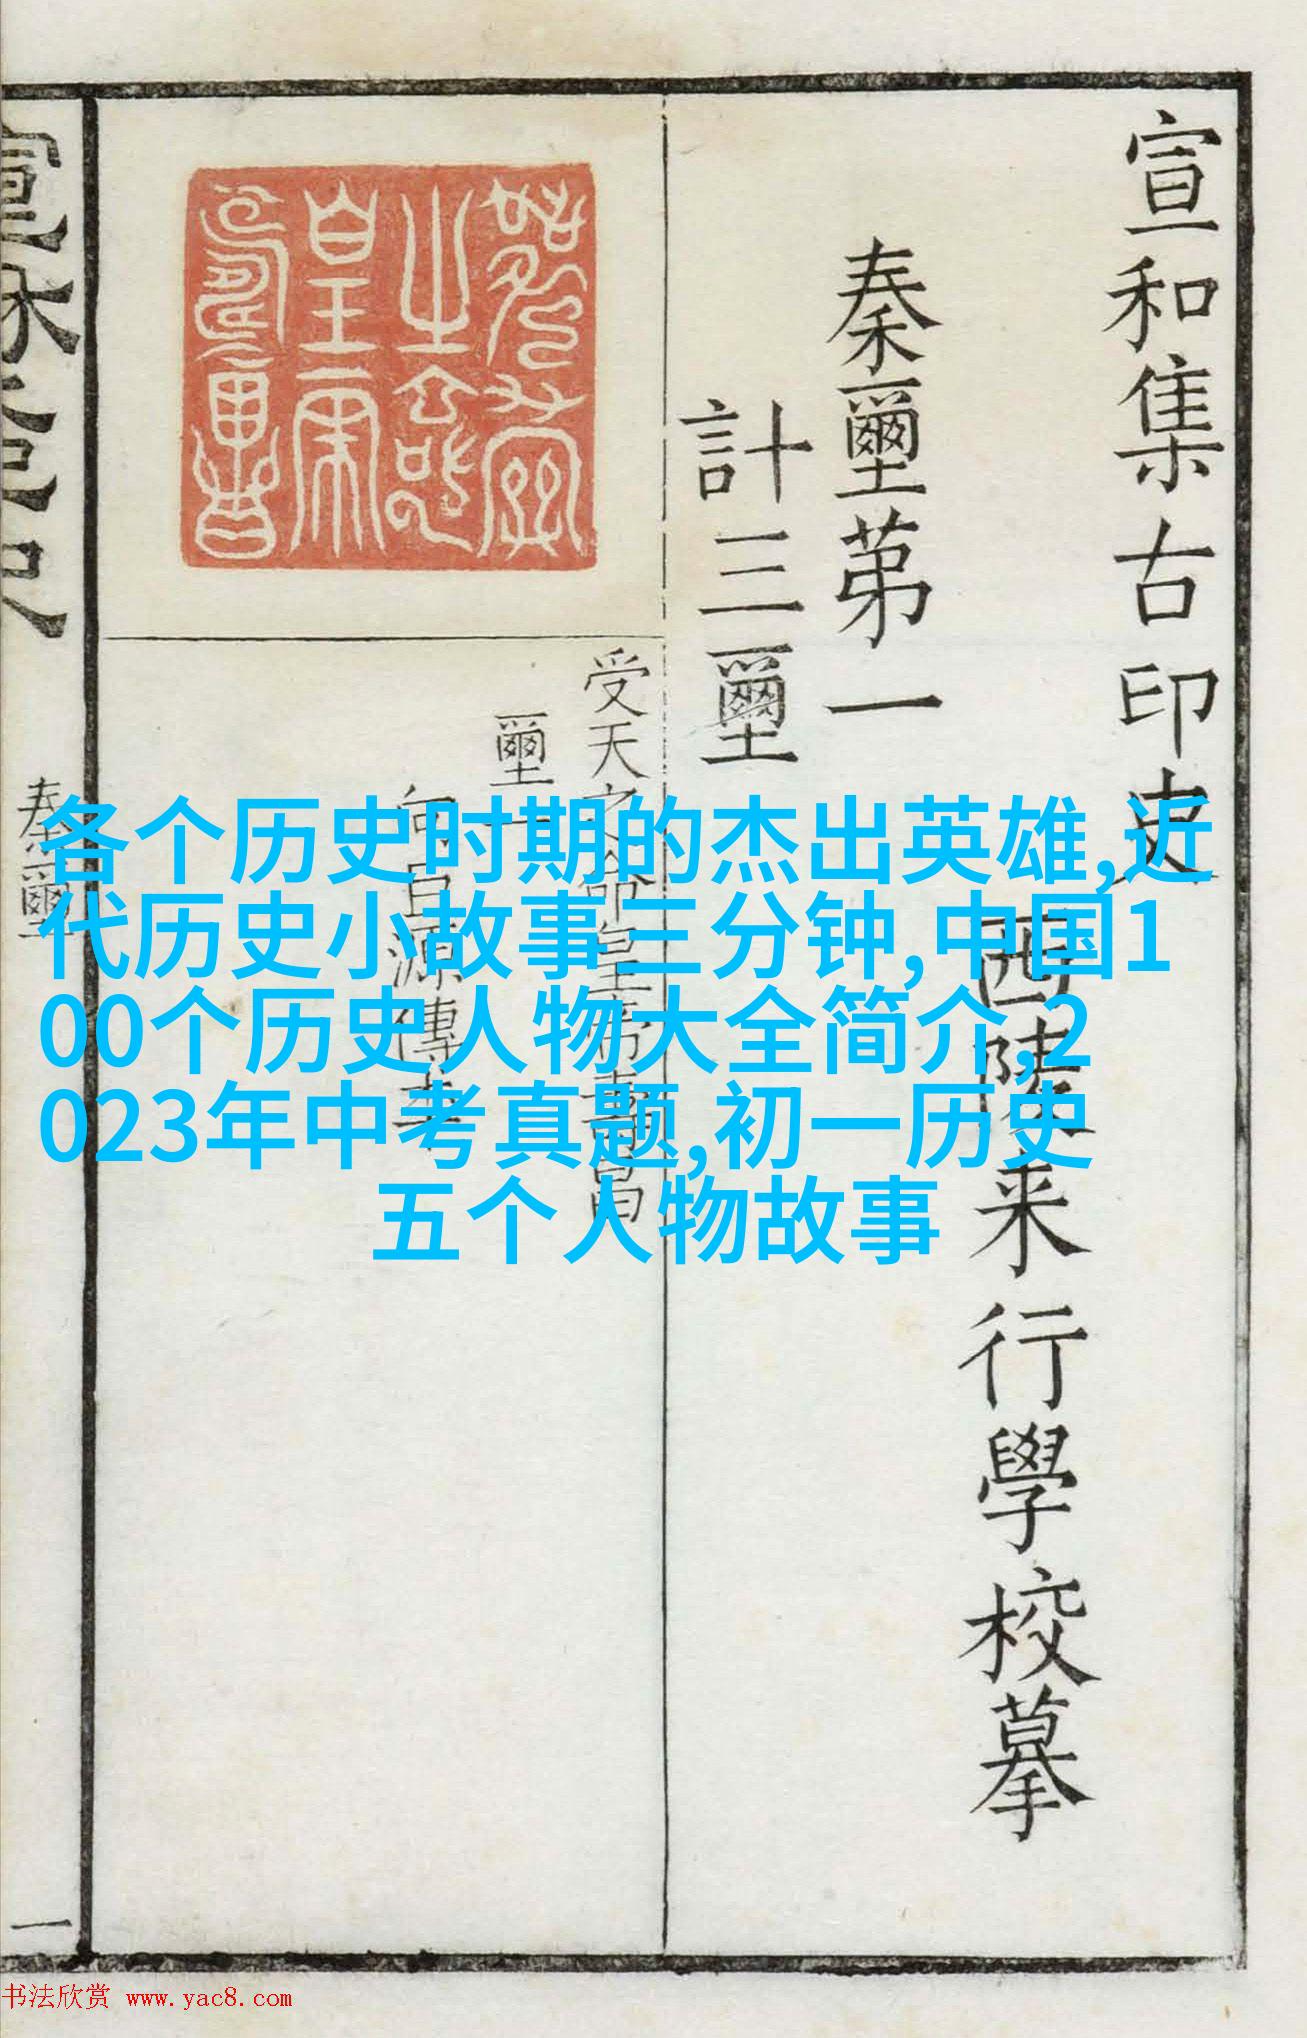 宣和集古印史
西陵来行學校摹
秦璽第一
計三璽
受天之命皇帝壽昌
璽一
向巨源傳本
秦璽
一
各个历史时期的杰出英雄,近
代历史小故事三分钟,中国1
00个历史人物大全简介,2
023年中考真题,初一历史
五个人物故事
书法欣赏 www.yac8.com